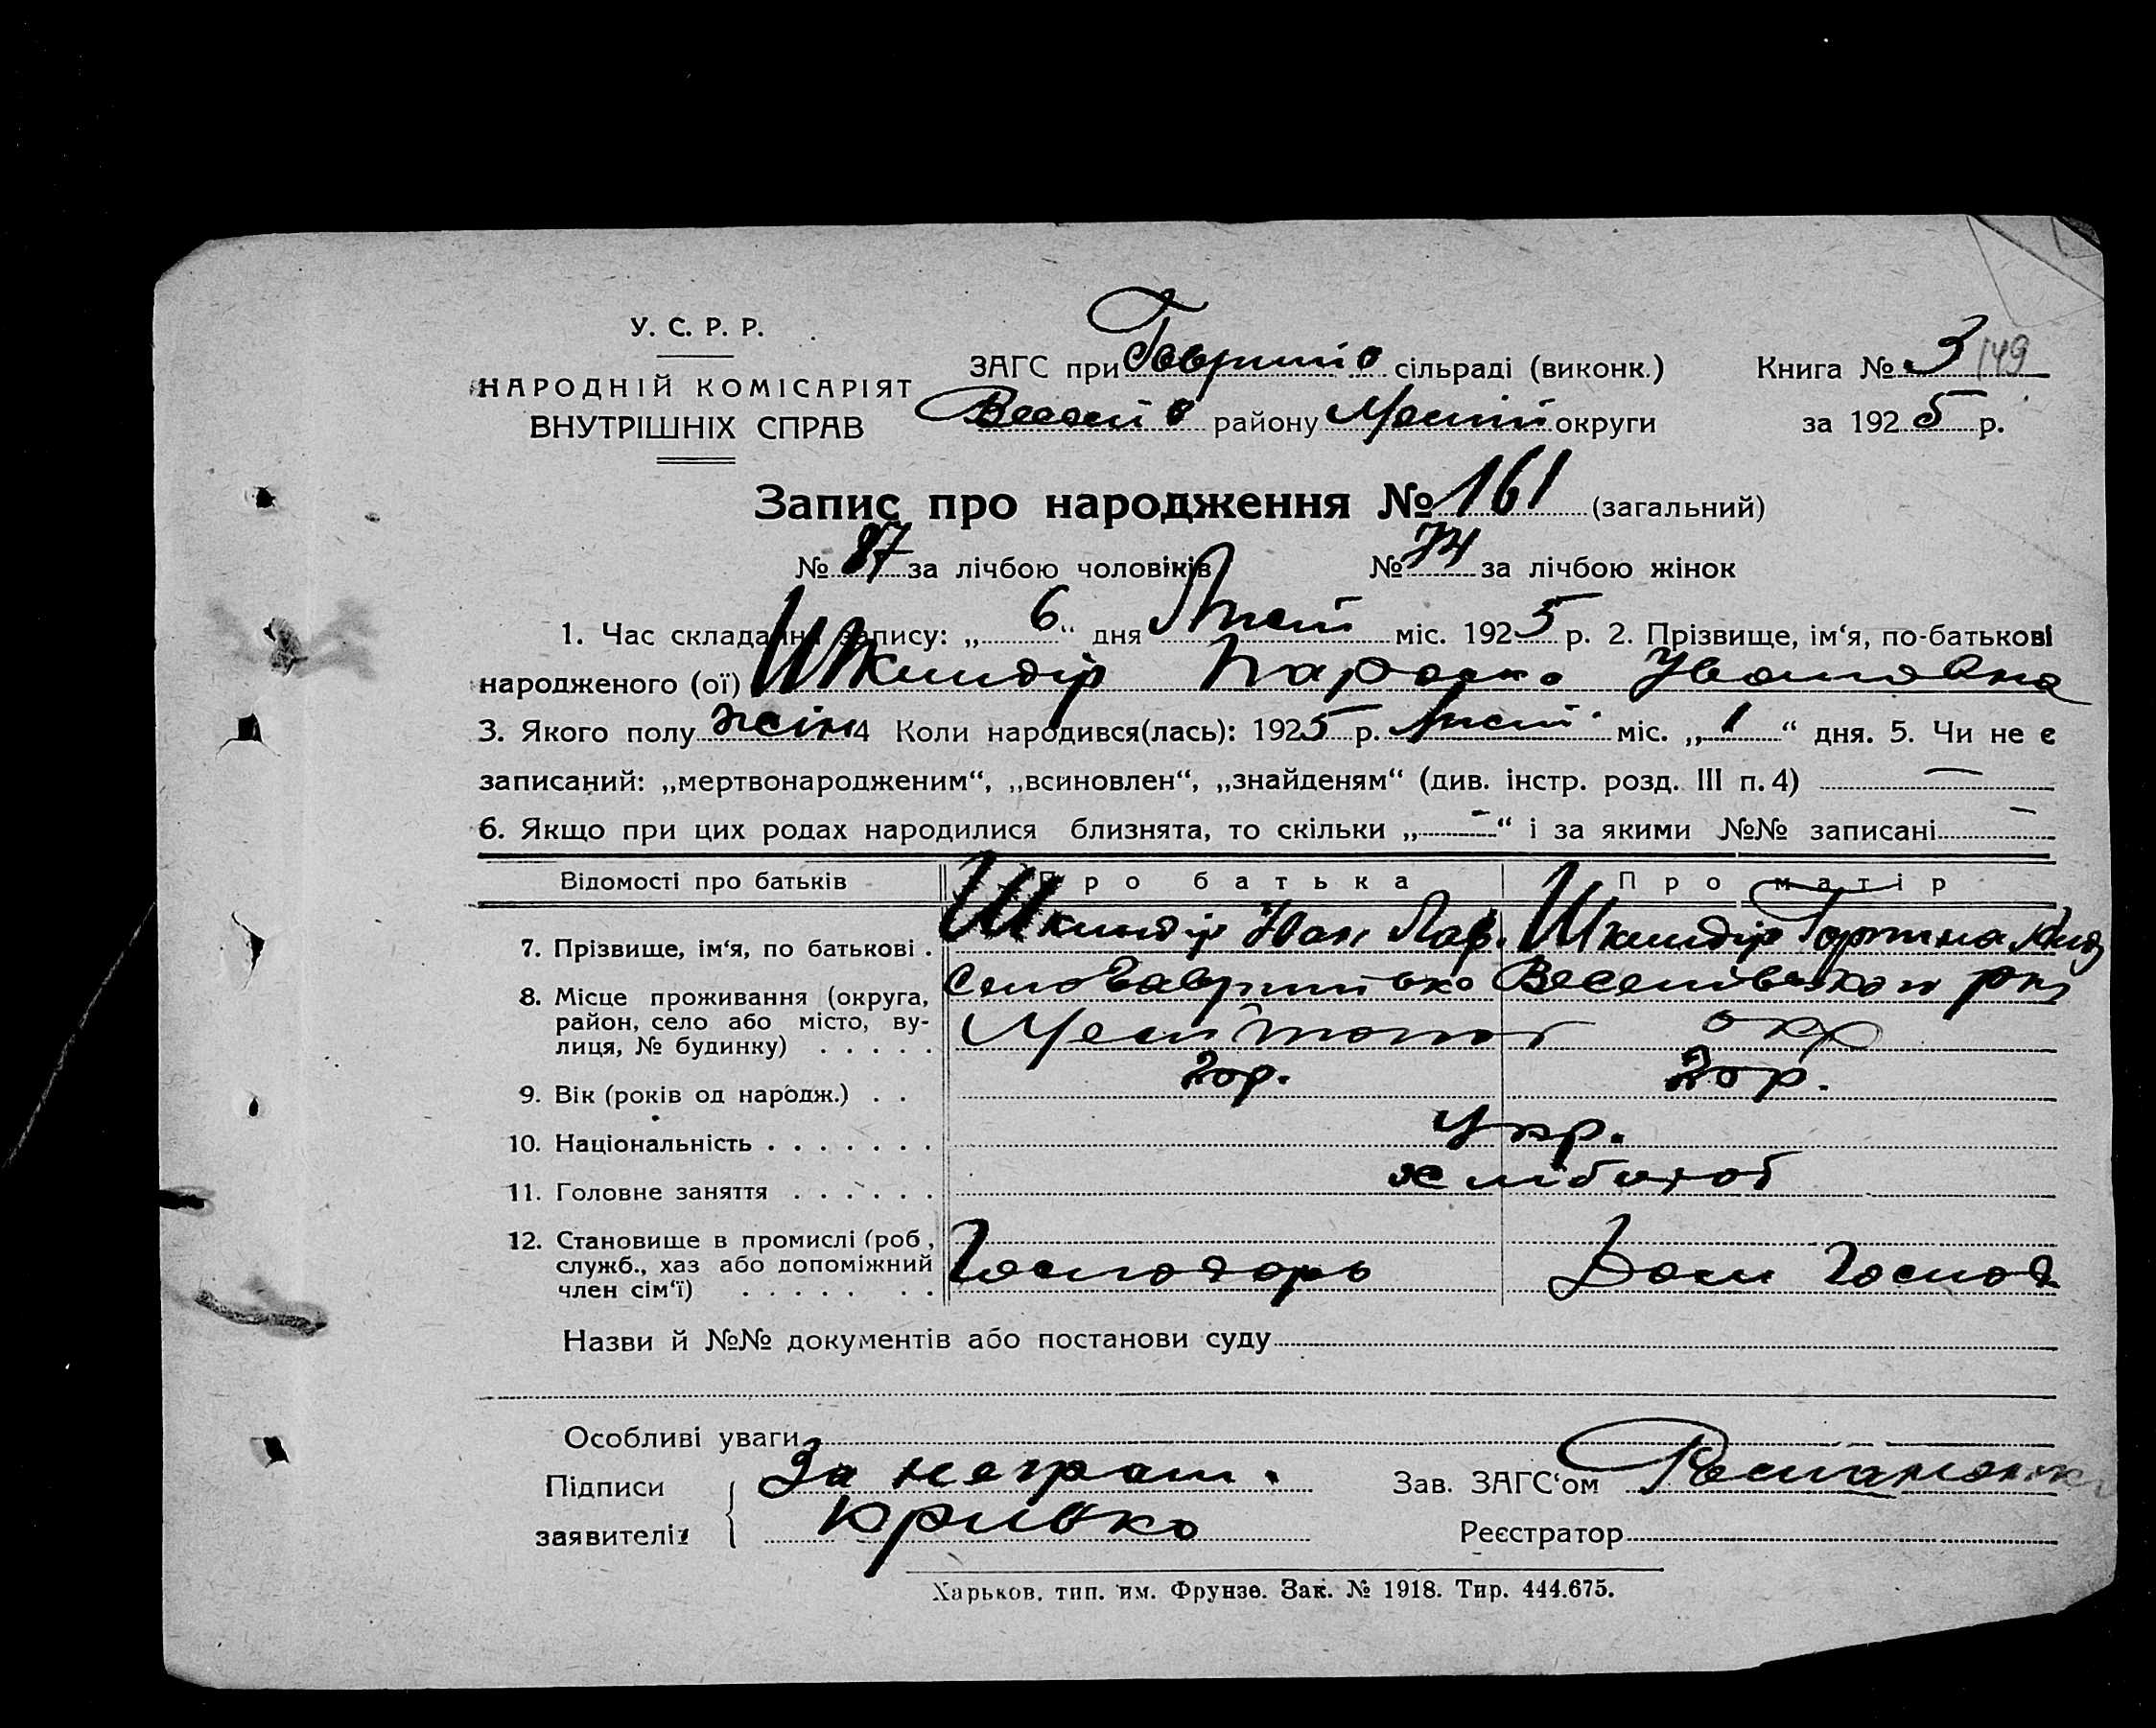 У. С. Р. Р.
НАРОДНІЙ КОМІСАРІЯТ
ВНУТРІШНІХ СПРАВ
ЗАГС при сільраді (виконк.)
району округи
Книга № 3 149
за 1925 р.
Запис про народження № 161 (загальний)
№ 87 за лічбою чоловіків № 74 за лічбою жінок
1. Час складання запису: „ 6 “ дня міс. 1925 р. 2. Прізвище, ім‘я, по-батькові
народженого (ої) Шкиндір Параска Ивановна
3. Якого полу жін 4 Коли народився(лась): 1925 р. міс. „ 1 “ дня. 5. Чи не є
записаний: „мертвонародженим“, „всиновлен“, „знайденям“ (див. інстр. розд. III п. 4) —
6. Якщо при цих родах народилися близнята, то скільки „ — “ і за якими №№ записані —
Відомості про батьків Про батька Про матір
7. Прізвище, ім‘я, по батькові . Шкиндір Иван Лав. Шкиндір
8. Місце проживання (округа, село
район, село або місто, ву-
лиця, № будинку) . . . . . окр
9. Вік (років од народж.) . . 20р. 20р.
10. Національність . . . . . . . Укр.
11. Головне заняття . . . . . . хлібороб
12. Становище в промислі (роб.,
служб., хаз або допоміжний Господарь Дом Господ
член сім‘ї) . . . . . . .
Назви й №№ документів або постанови суду
Особливі уваги
Підписи За неграм. Зав. ЗАГС‘ом
заявителів Кривко Реєстратор
Харьков, тип. им. Фрунзе. Зак. № 1918. Тир. 444.675.